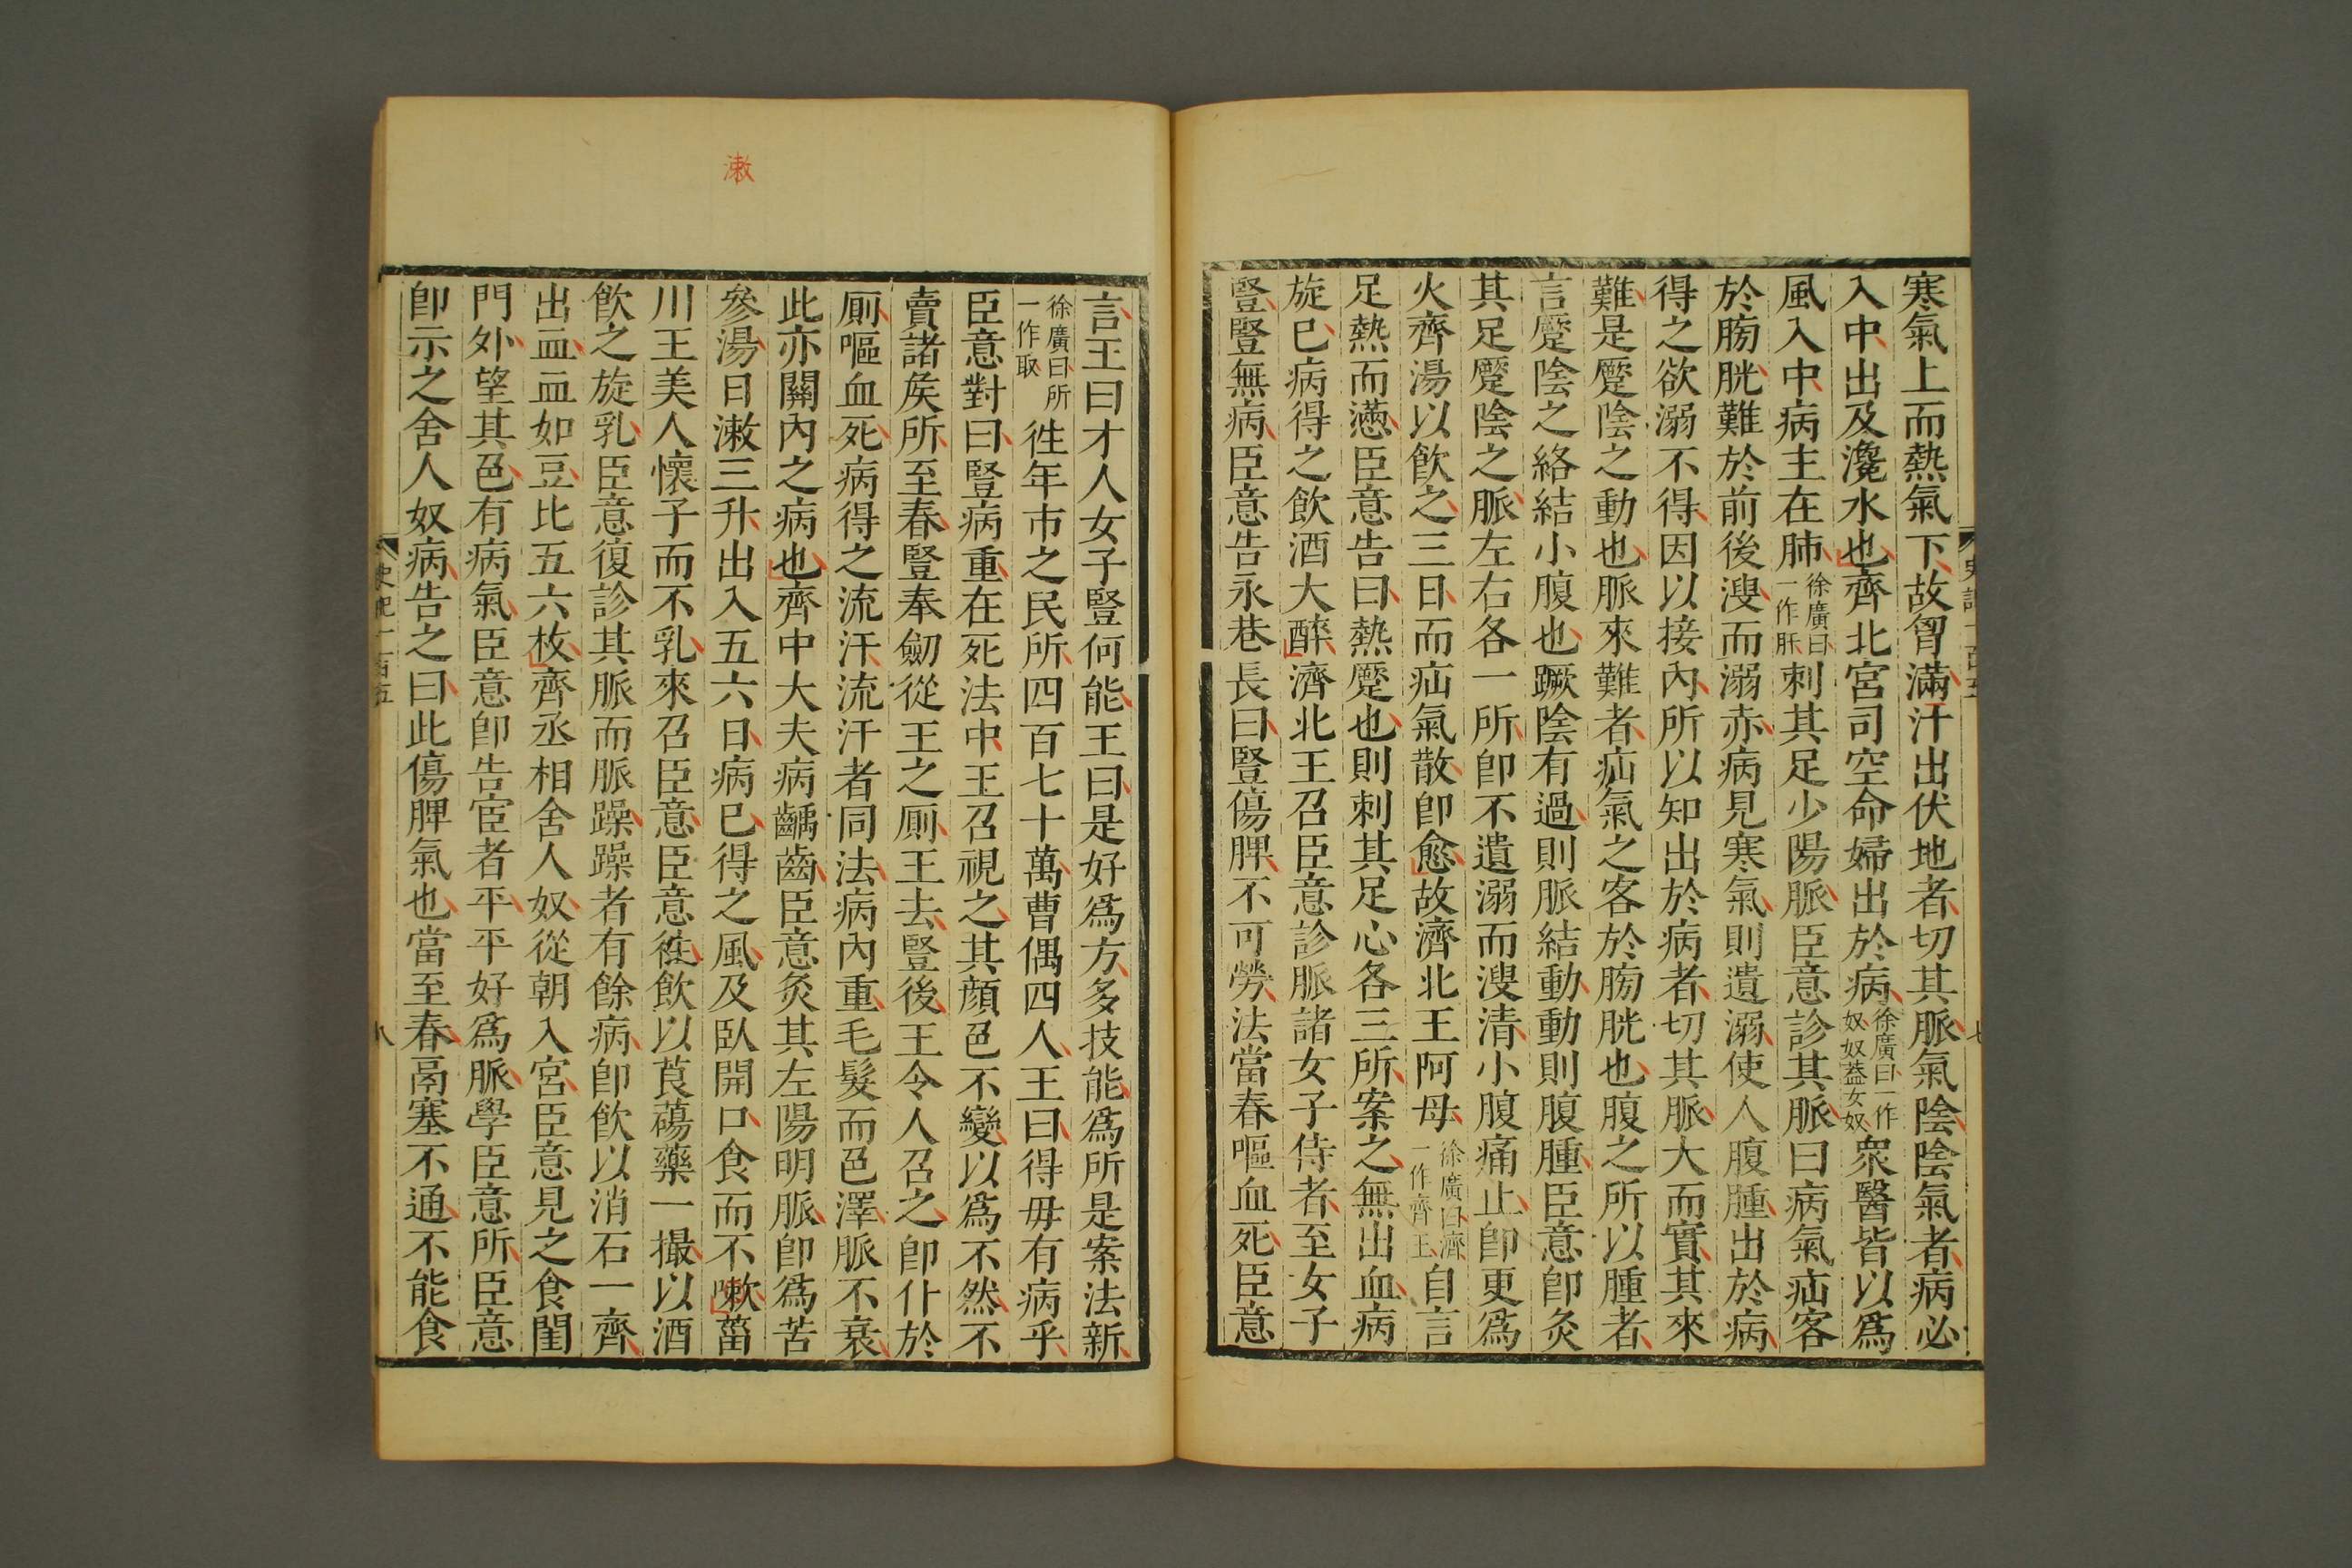 寒氣上而熱氣下故胷滿汗出伏地者切其脈氣陰陰氣者病必
入中出及瀺水也齊北宮司空命婦出於病徐廣曰一作奴奴葢女奴衆醫皆以爲
風入中病主在肺徐廣曰一作肝刺其足少陽脈臣意診其脈曰病氣疝客
於膀胱難於前後溲而溺赤病見寒氣則遺溺使人腹腫出於病
得之欲溺不得因以接內所以知出於病者切其脈大而實其來
難是蹷陰之動也脈來難者疝氣之客於膀胱也腹之所以腫者
言蹷陰之絡結小腹也蹶陰有過則脈結動動則腹腫臣意卽灸
其足蹷陰之脈左右各一所卽不遺溺而溲清小腹痛止卽更爲
火齊湯以飲之三日而疝氣散卽愈故濟北王阿母徐廣曰濟一作齊王自言
足熱而懣臣意告曰熱蹷也則刺其足心各三所案之無出血病
旋已病得之飲酒大醉濟北王召臣意診脈諸女子侍者至女子
豎豎無病臣意告永巷長曰豎傷脾不可勞法當春嘔血死臣意
史記一百五
七
言王曰才人女子豎何能王曰是好爲方多技能爲所是案法新
徐廣曰所一作取徃年市之民所四百七十萬曹偶四人王曰得毋有病乎
臣意對曰豎病重在死法中王召視之其顏色不變以爲不然不
賣諸矦所至春豎奉劒從王之厠王去豎後王令人召之卽仆於
厠嘔血死病得之流汗流汗者同法病內重毛髮而色澤脈不衰
此亦關內之病也齊中大夫病齲齒臣意灸其左陽明脈卽爲苦
參湯日漱三升出入五六日病已得之風及臥開口食而不嗽菑
川王美人懷子而不乳來召臣意臣意徃飲以莨䕞藥一撮以酒
飲之旋乳臣意復診其脈而脈躁躁者有餘病卽飲以消石一齊
出血血如豆比五六枚齊丞相舍人奴從朝入宮臣意見之食閨
門外望其色有病氣臣意卽告宦者平平好爲脈學臣意所臣意
卽示之舍人奴病告之曰此傷脾氣也當至春鬲塞不通不能食
史記一百五
八
漱